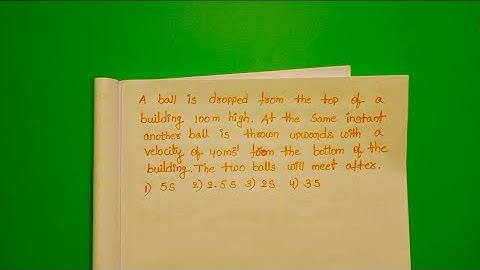 A ball is dropped from the top of a
building 100m high. At the same instant
another ball is thrown upwards with a
velocity of 40ms⁻¹ from the bottom of the
building. The two balls will meet after.
1) 5S 2) 2.5S 3) 2S 4) 3S